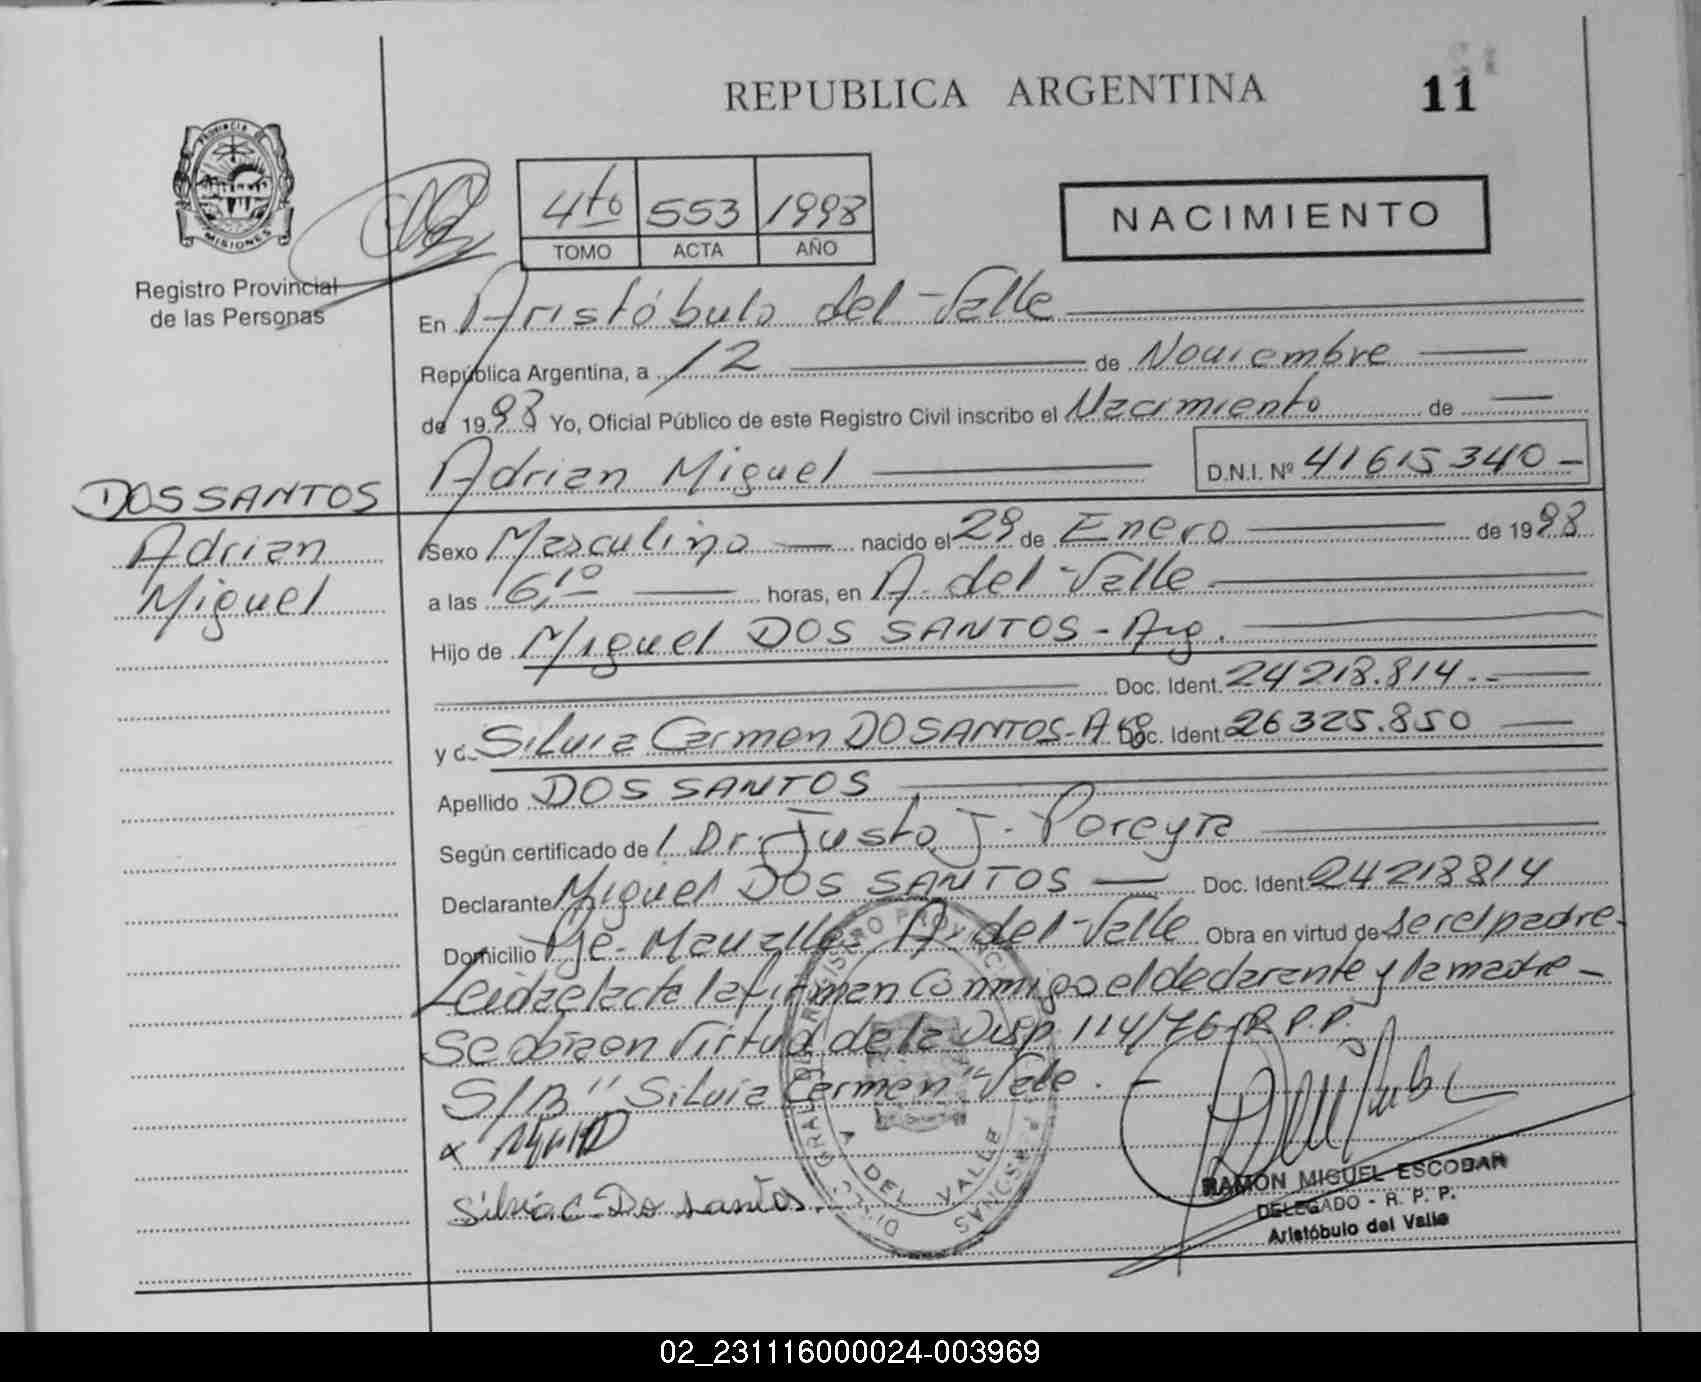 REPUBLICA ARGENTINA
11
PROVINCIA DE
MISIONES
Registro Provincial
de las Personas
4to 553 1998
TOMO ACTA AÑO
NACIMIENTO
En Aristóbulo del Valle
República Argentina, a 12 de Noviembre
de 1998 Yo, Oficial Público de este Registro Civil inscribo el Nacimiento de
Adrian Miguel D.N.I. Nº 41615340-
DOS SANTOS
Adrian
Miguel
Sexo Masculino nacido el 29 de Enero de 1998
a las 6,10 horas, en A. del Valle
Hijo de Miguel DOS SANTOS - Arg.
Doc. Ident. 24218.814.-
y d Silvia Carmen DO SANTOS-Arg Doc. Ident. 26325.850
Apellido DOS SANTOS
Según certificado de Dr. Justo J. Pereyra
Declarante Miguel DOS SANTOS Doc. Ident. 24218814
Domicilio A. del Valle Obra en virtud de ser el padre
Leida el acta la firman conmigo el declarante y la madre-
Se obra en Virtud de la Disp. 114/76-R.P.P.
S/B "Silvia Carmen" Vale.-
Silvia C. Do santos
REGISTRO PROVINCIAL DE LAS PERSONAS
A DEL VALLE
RAMON MIGUEL ESCOBAR
DELEGADO - R. P. P.
Aristóbulo del Valle
02_231116000024-003969